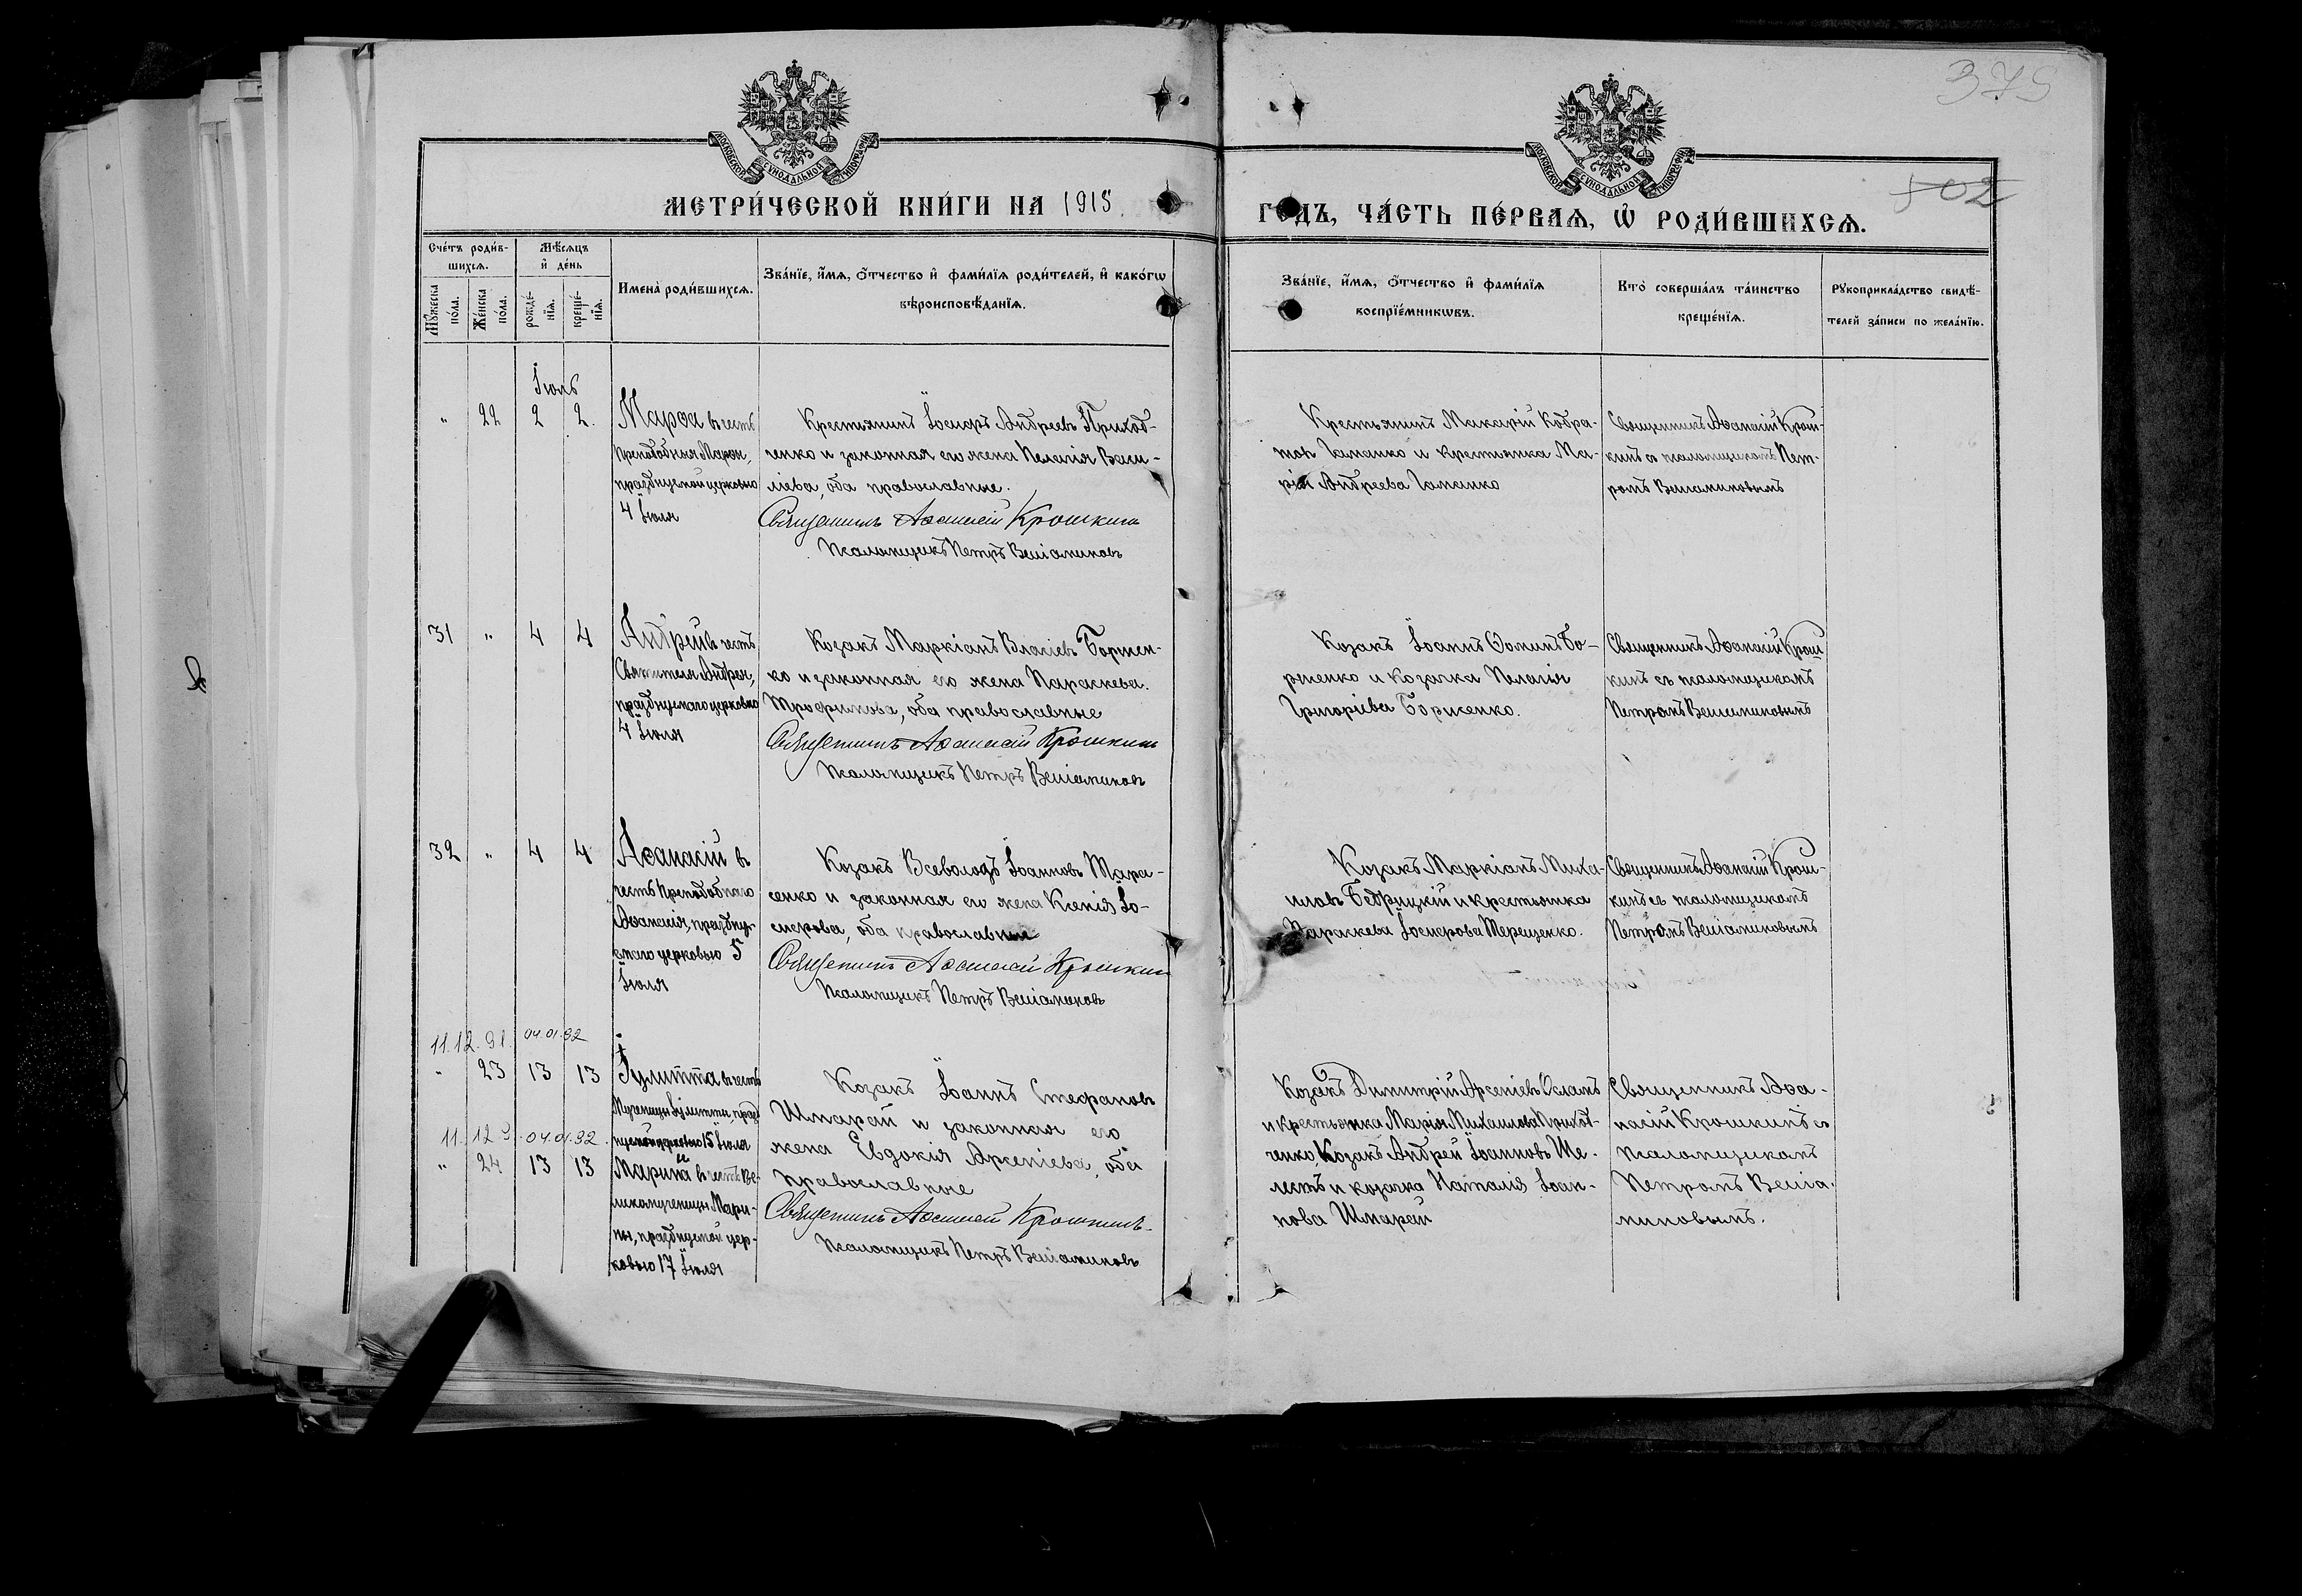 379
502
МОСКОВСКОЙ СѴНОДАЛЬНОЙ ТИПОГРАФІИ
МОСКОВСКОЙ СѴНОДАЛЬНОЙ ТИПОГРАФІИ
МЕТРИ́ЧЕСКОЙ КНИ́ГИ НА 1915
ГОДЪ, ЧА́СТЬ ПЕ́РВАѦ, Ѡ҆ РОДИ́ВШИХСѦ.
Сче́тъ роди́в-
шихсѧ.
Мꙋ́жеска по́ла.
Же́нска по́ла.
Мѣ́сѧцъ
и҆ де́нь
рожде́-
нїѧ.
креще́-
нїѧ.
Имена̀ роди́вшихсѧ.
Зва́нїе, и҆́мѧ, ѻ҆́тчество и҆ фами́лїѧ роди́телей, и҆ како́гѡ
вѣроисповѣ́данїѧ.
Зва́нїе, и҆́мѧ, ѻ҆́тчество и҆ фами́лїѧ
воспрїе́мникѡвъ.
Кто̀ соверша́лъ та́инство
креще́нїѧ.
Рꙋкоприкла́дство свидѣ́-
телей за́писи по жела́нїю.
Іюль
" 22 2 2.
Марѳа въ честь
Преподобныя Марѳы,
празднуемой церковью
4 Іюля
Крестьянинъ Іосифъ Андреевъ Приход-
ченко и законная его жена Пелагія Васи-
ліева, оба православные.
Священникъ Аѳанасій Крошкинъ
Псаломщикъ Петръ Веніаминовъ
Крестьянинъ Макарій Кодра-
товъ Гаманко и крестьянка Ма-
рія Андреева Гаманко
Священникъ Аѳанасій Крош-
кинъ съ псаломщикомъ Пет-
ромъ Веніаминовымъ
31 " 4 4
Андрей въ честь
Святителя Андрея,
празднуемаго церковью
4 Іюля
Козакъ Маркіанъ Власіевъ Боржен-
ко и законная его жена Параскева.
Трофимова, оба православные
Священникъ Аѳанасій Крошкинъ
Псаломщикъ Петръ Веніаминовъ
Козакъ Іоаннъ Ѳоминъ Бо-
рженко и козачка Пелагія
Григоріева Борженко.
Священникъ Аѳанасій Крош
кинъ съ псаломщикомъ
Петромъ Веніаминовымъ
32 " 4 4
Аѳанасій въ
честь Преподобнаго
Аѳанасія, праздну-
емаго церковью 5
Іюля
Козакъ Всеволодъ Іоанновъ Тара-
сенко и законная его жена Ксенія Іо-
сифова, оба православные
Священникъ Аѳанасій Крошкинъ
Псаломщикъ Петръ Веніаминовъ
Козакъ Маркіанъ Миха-
иловъ Бедрицкій и крестьянка
Параскева Іосифова Терещенко.
Священникъ Аѳанасій Крош-
кинъ съ псаломщикомъ
Петромъ Веніаминовымъ
11.12.91. 04.01.92
" 23 13 13
Іулитта въ честь
Мученицы Іулитты, празд
нуемой церковью 15 Іюля
11.12 04.01.92.
" 24 13 13
Марина въ честь Ве-
ликомученицы Мари-
ны, празднуемой цер-
ковью 17 Іюля
Козакъ Іоаннъ Стефановъ
Шмарай и законная его
жена Евдокія Арсеніева, оба
православные
Священникъ Аѳанасій Крошкинъ
Псаломщикъ Петръ Веніаминовъ
Козакъ Димитрій Арсеніевъ
и крестьянка Марія Михаилова Приход-
ченко, Козакъ Андрей Іоанновъ Ше-
лестъ и козачка Наталія Іоан-
нова Шмарай
Священникъ Аѳа-
насій Крошкинъ съ
псаломщикомъ
Петромъ Веніа-
миновымъ.